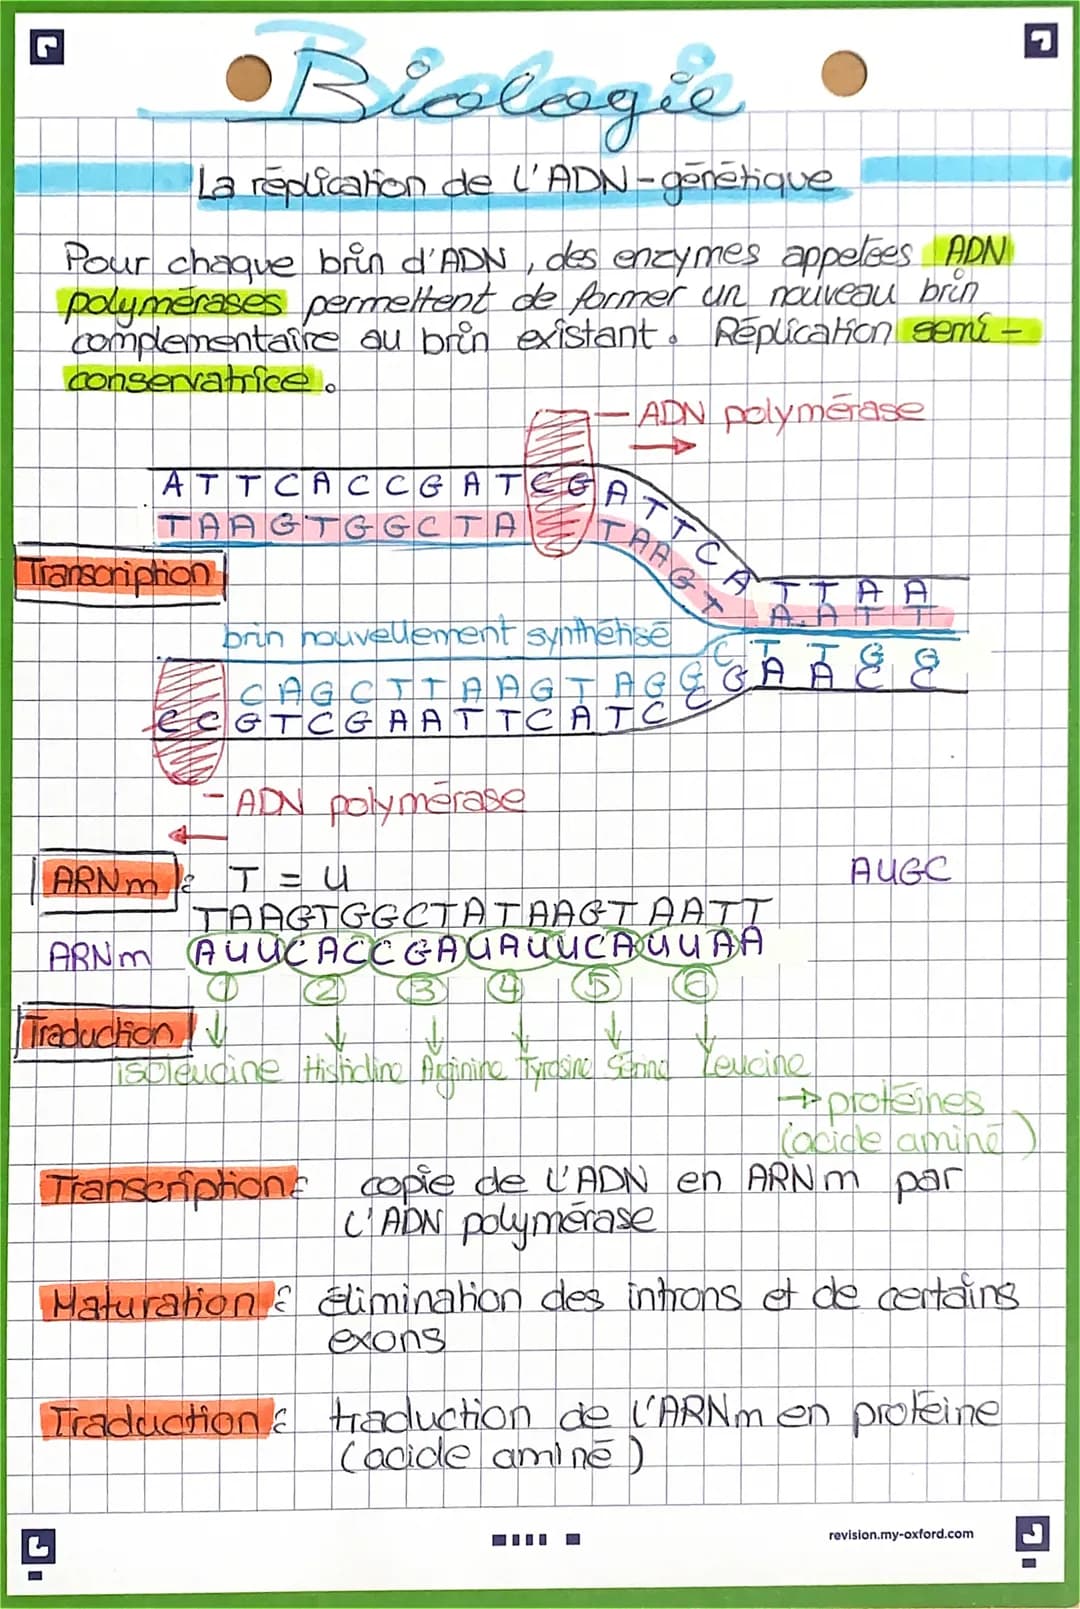 Biologie
La réplication de l'ADN-génétique
Pour chaque brin d'ADN, des enzymes appelées ADN
polymérases permettent de former un nouveau brin
complementaire au brin existant. Réplication semi-
conservatrice.
- ADN polymérase
ATTCACCGATCGATTCATTAA
TAAGTGGCTA TAAGT AATT
Transcription
brin nouvellement synthétisé
CAGCTTAAGTAGG
CCGTCGAATTCATC
- ADN polymérase
ARNm : T = U
AUGC
TAAGTGGCTATAAGTAATT
ARNm AUUCACCGAUAUUCAUUAA
1 2 3 4 5 6
Traduction
isoleucine Histidine Arginine Tyrosine Sérine Leucine
→ protéines
(acide aminé)
Transcription: copie de l'ADN en ARNm par
l'ADN polymérase
Maturation: élimination des introns et de certains
exons
Traduction: traduction de l'ARNm en protéine
(acide aminé)
revision.my-oxford.com